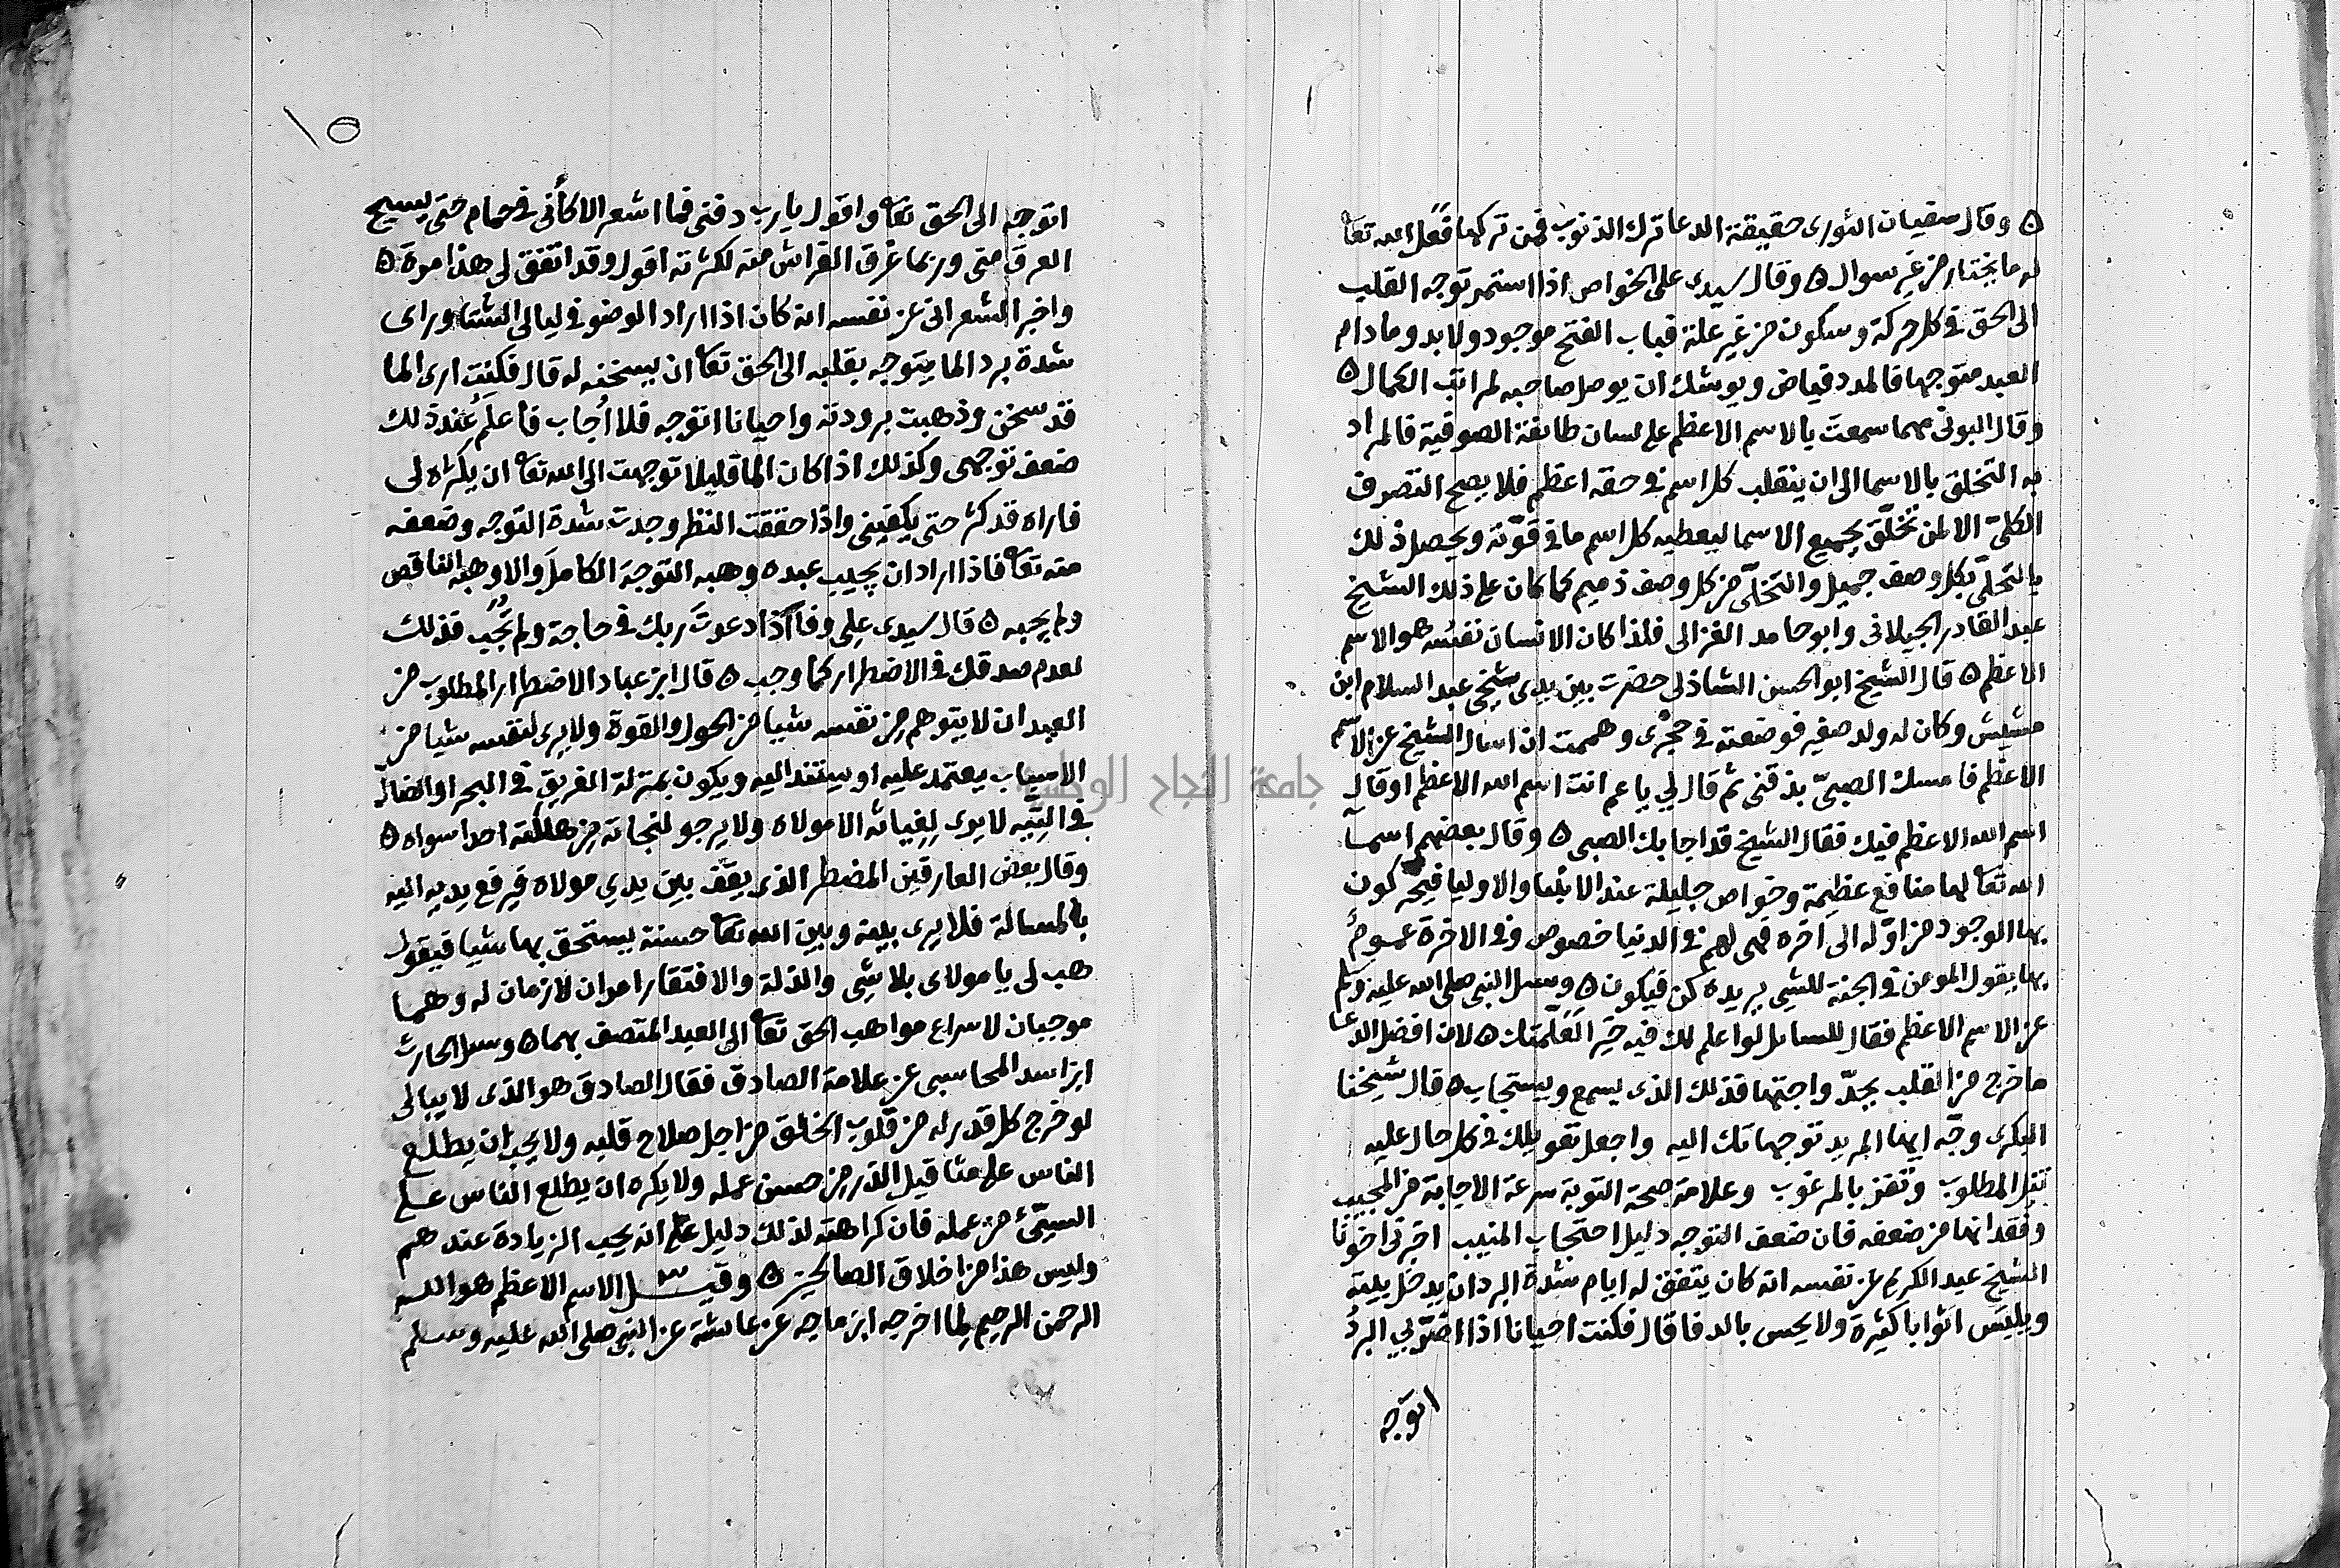 ه وقال سفيان الثورى حقيقة الدعا ترك الذنوب فمن تركها فعل الله تعا
له ما يختار من غير سوال ه وقال سيدى على الخواص اذا استمر توجه القلب
الى الحق فى كل حركة وسكون من غير علة فباب الفتح موجود ولا بد وما دام
العبد متوجها فالمدد فياض ويوشك ان يوصل صاحبه لمراتب الكمال ه
وقال البونى مهما سمعت يالاسم الاعظم على لسان طائفة الصوفية فالمراد
به التخلق بالاسما الى ان ينقلب كل اسم فى حقه اعظم فلا يصح التصرف
الكلىّ الا لمن تخلّق بجميع الاسما ليعطيه كل اسم ما فى قوّته ويحصل ذلك
بالتحلّى بكل وصف جميل والتخلّى من كل وصف ذميم كما كان على ذلك الشيخ
عبد القادر الجيلانى وابو حامد الغزالى فلذا كان الانسان نفسُه هو الاسم
الاعظم ه قال الشيخ ابو الحسن الشاذلى حضرت بين يدى شيخى عبد السلام ابن
مشيش وكان له ولد صغير فوضعته فى حجرى وهممت ان اسال الشيخ عن الاسم
الاعظم فامسك الصبىّ بذقنى ثم قال لي يا عم انت اسم الله الاعظم او قال
اسم الله الاعظم فيك فقال الشيخ قد اجابك الصبى ه وقال بعضهم اسمآ
الله تعا لها منافع عظيمة وخواص جليلة عند الانبيا والاوليا فيحركون
بها الوجود من اوّله الى آخره فهى لهم فى الدنيا خصوص وفى الاخرة عموم
بها يقول المومن فى الجنة للشى يريده كن فيكون ه وسيل النبى صلى الله عليه وسلم
عن الاسم الاعظم فقال للسايل لو اعلم لك فيه خيرا لعلّمتك ه لان افضل الدعا
ما خرج من القلب بجدّ واجتهاد فذلك الذى يسمع ويستجاب ه قال شيخنا
البكرى وجّه ايها المريد توجهاتك اليه واجعل تعويلك فى كل حال عليه
تنل المطلوب وتفز بالمرغوب وعلامة صحة التوبة سرعة الاجابة من المجيب
وفقدانها من ضعفه فان ضعف التوجه دليل احتجاب المنيب اخبرنى اخونا
الشيخ عبد الكريم عن نفسه انه كان يتفق له ايام شدة البرد ان يدخل بيته
ويلبس اثوابا كثيرة ولا يحس بالدفا قال فكنت احيانا اذا اضرّ بي البردُ
اتوجه
١٥
اتوجه الى الحق تعا واقول يا رب دفنى فما اشعر الا كأنى فى حمام حتى يسيح
العرق منى وربما غرق الفراش منه لكثرته اقول وقد اتفق لى هذا مرة ه
واخبر الشعرانى عن نفسه انه كان اذا اراد الوضو فى ليالى الشتا وراى
شدة برد الما يتوجه بقلبه الى الحق تعا ان يسخنه له قال فكنت ارى الما
قد سخن وذهبت برودته واحيانا اتوجه فلا اُجاب فاعلم عند ذلك
ضعف توجهى وكذلك اذا كان الما قليلا توجهت الى الله تعا ان يكثره لى
فاراه قد كثر حتى يكفينى واذا حققت النظر وجدت شدة التوجه وضعفه
منه تعا فاذا اراد ان يجيب عبده وهبه التوجه الكامل والا وهبه الناقص
ولم يجبه ه قال سيدى على وفا اذا دعوت ربك فى حاجة ولم تُجَب فذلك
لعدم صدقك فى الاضطرار كما وجب ه قال ابن عباد الاضطرار المطلوب من
العبد ان لا يتوهم من نفسه شيا من الحول والقوة ولا يرى لنفسه شيا من
الاسباب يعتمد عليه او يستند اليه ويكون بمنزلة الغريق فى البحر او الضال
فى التِّيه لا يرى لِغِياثه الا مولاه ولا يرجو لنجاته من هلكته احدا سواه ه
وقال بعض العارفين المضطر الذى يقف بين يدي مولاه فيرفع يديه اليه
بالمسالة فلا يرى بينه وبين الله تعا حسنة يستحق بها شيا فيقول
هب لى يا مولاى بلا شى والذلة والافتقار امران لازمان له وهما
موجبان لاسراع مواهب الحق تعا الى العبد المتصف بهما ه وسيل الحارث
ابن اسد المحاسبى عن علامة الصادق فقال الصادق هو الذى لا يبالى
لو خرج كل قدر له من قلوب الخلق من اجل صلاح قلبه ولا يحب ان يطلع
الناس على مثاقيل الذر من حسن عمله ولا يكره ان يطلع الناس على
السيّئ من عمله فان كراهته لذلك دليل على انه يحب الزيادة عندهم
وليس هذا من اخلاق الصالحين ه وقيل الاسم الاعظم هو الله
الرحمن الرحيم لما اخرجه ابن ماجه عن عائشة عن النبى صلى الله عليه وسلم
جامعة النجاح الوطنية